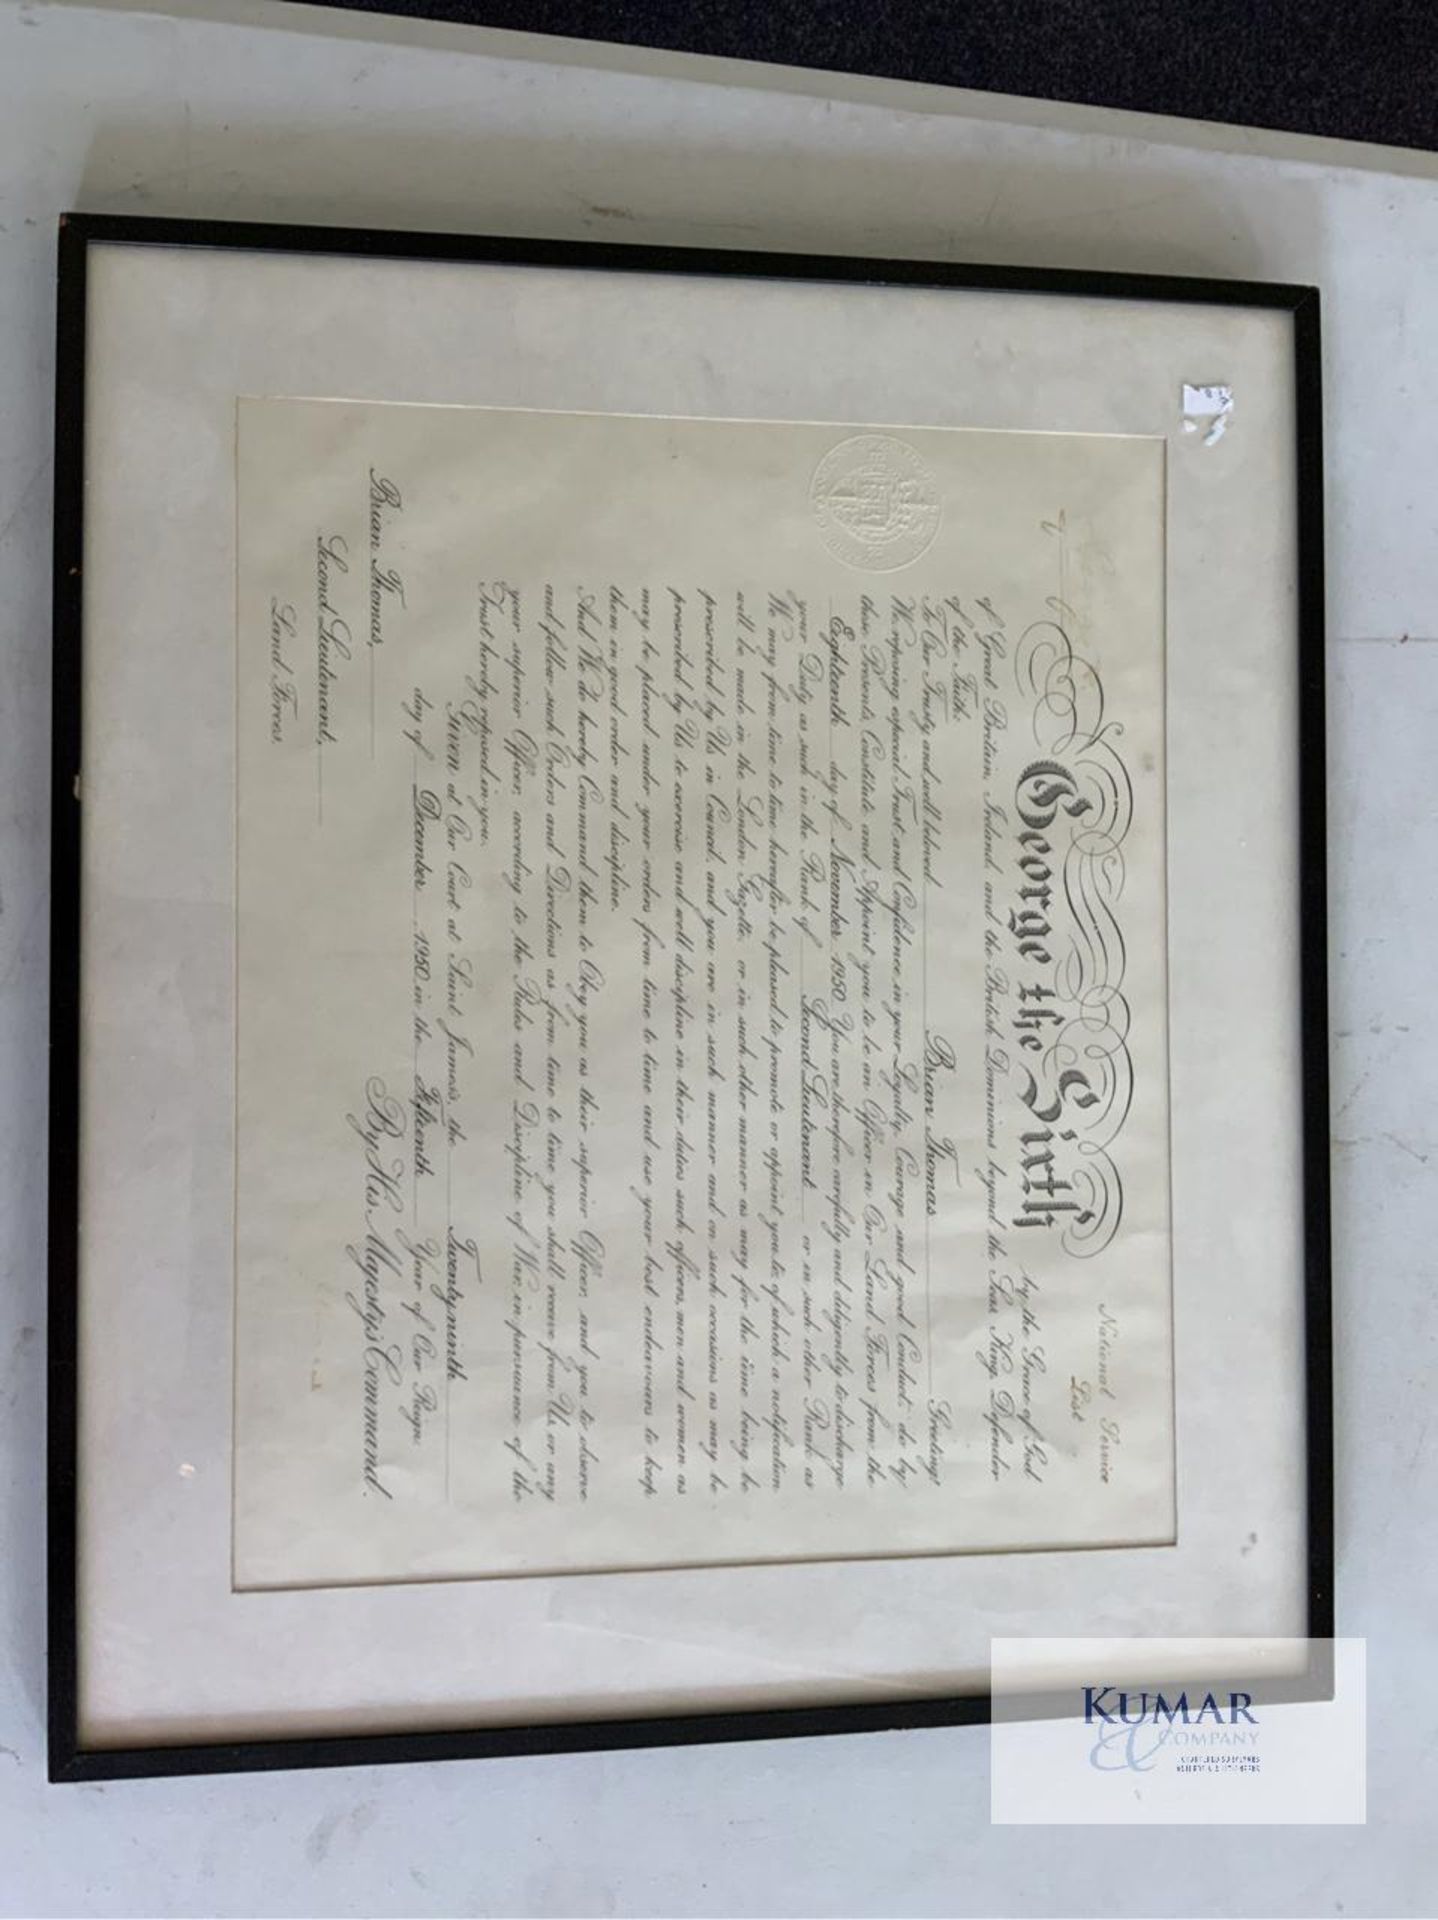 National Service
List
George the Sixth by the Grace of God
of Great Britain, Ireland, and the British Dominions beyond the Seas King, Defender
of the Faith.
To Our Trusty and well beloved Brian Thomas Greeting!
We, reposing especial Trust and Confidence in your Loyalty, Courage, and good Conduct, do by
these Presents, Constitute and Appoint you to be an Officer in Our Land Forces from the
Eighteenth day of November 1950. You are therefore carefully and diligently to discharge
your Duty as such in the Rank of Second Lieutenant or in such other Rank as
We may from time to time hereafter be pleased to promote or appoint you to, of which a notification
will be made in the London Gazette, or in such other manner as may for the time being be
prescribed by Us in Council, and you are in such manner and on such occasions as may be
prescribed by Us to exercise and well discipline in their duties such officers, men and women as
may be placed under your orders from time to time and use your best endeavours to keep
them in good order and discipline.
And We do hereby Command them to Obey you as their superior Officer, and you to observe
and follow such Orders and Directions as from time to time you shall receive from Us, or any
your superior Officer, according to the Rules and Discipline of War, in pursuance of the
Trust hereby reposed in you.
Given at Our Court, at Saint James's, the Twenty-ninth
day of December 1950, in the Fifteenth Year of Our Reign.
By His Majesty's Command.
Brian Thomas,
Second Lieutenant,
Land Forces.
KUMAR
& COMPANY